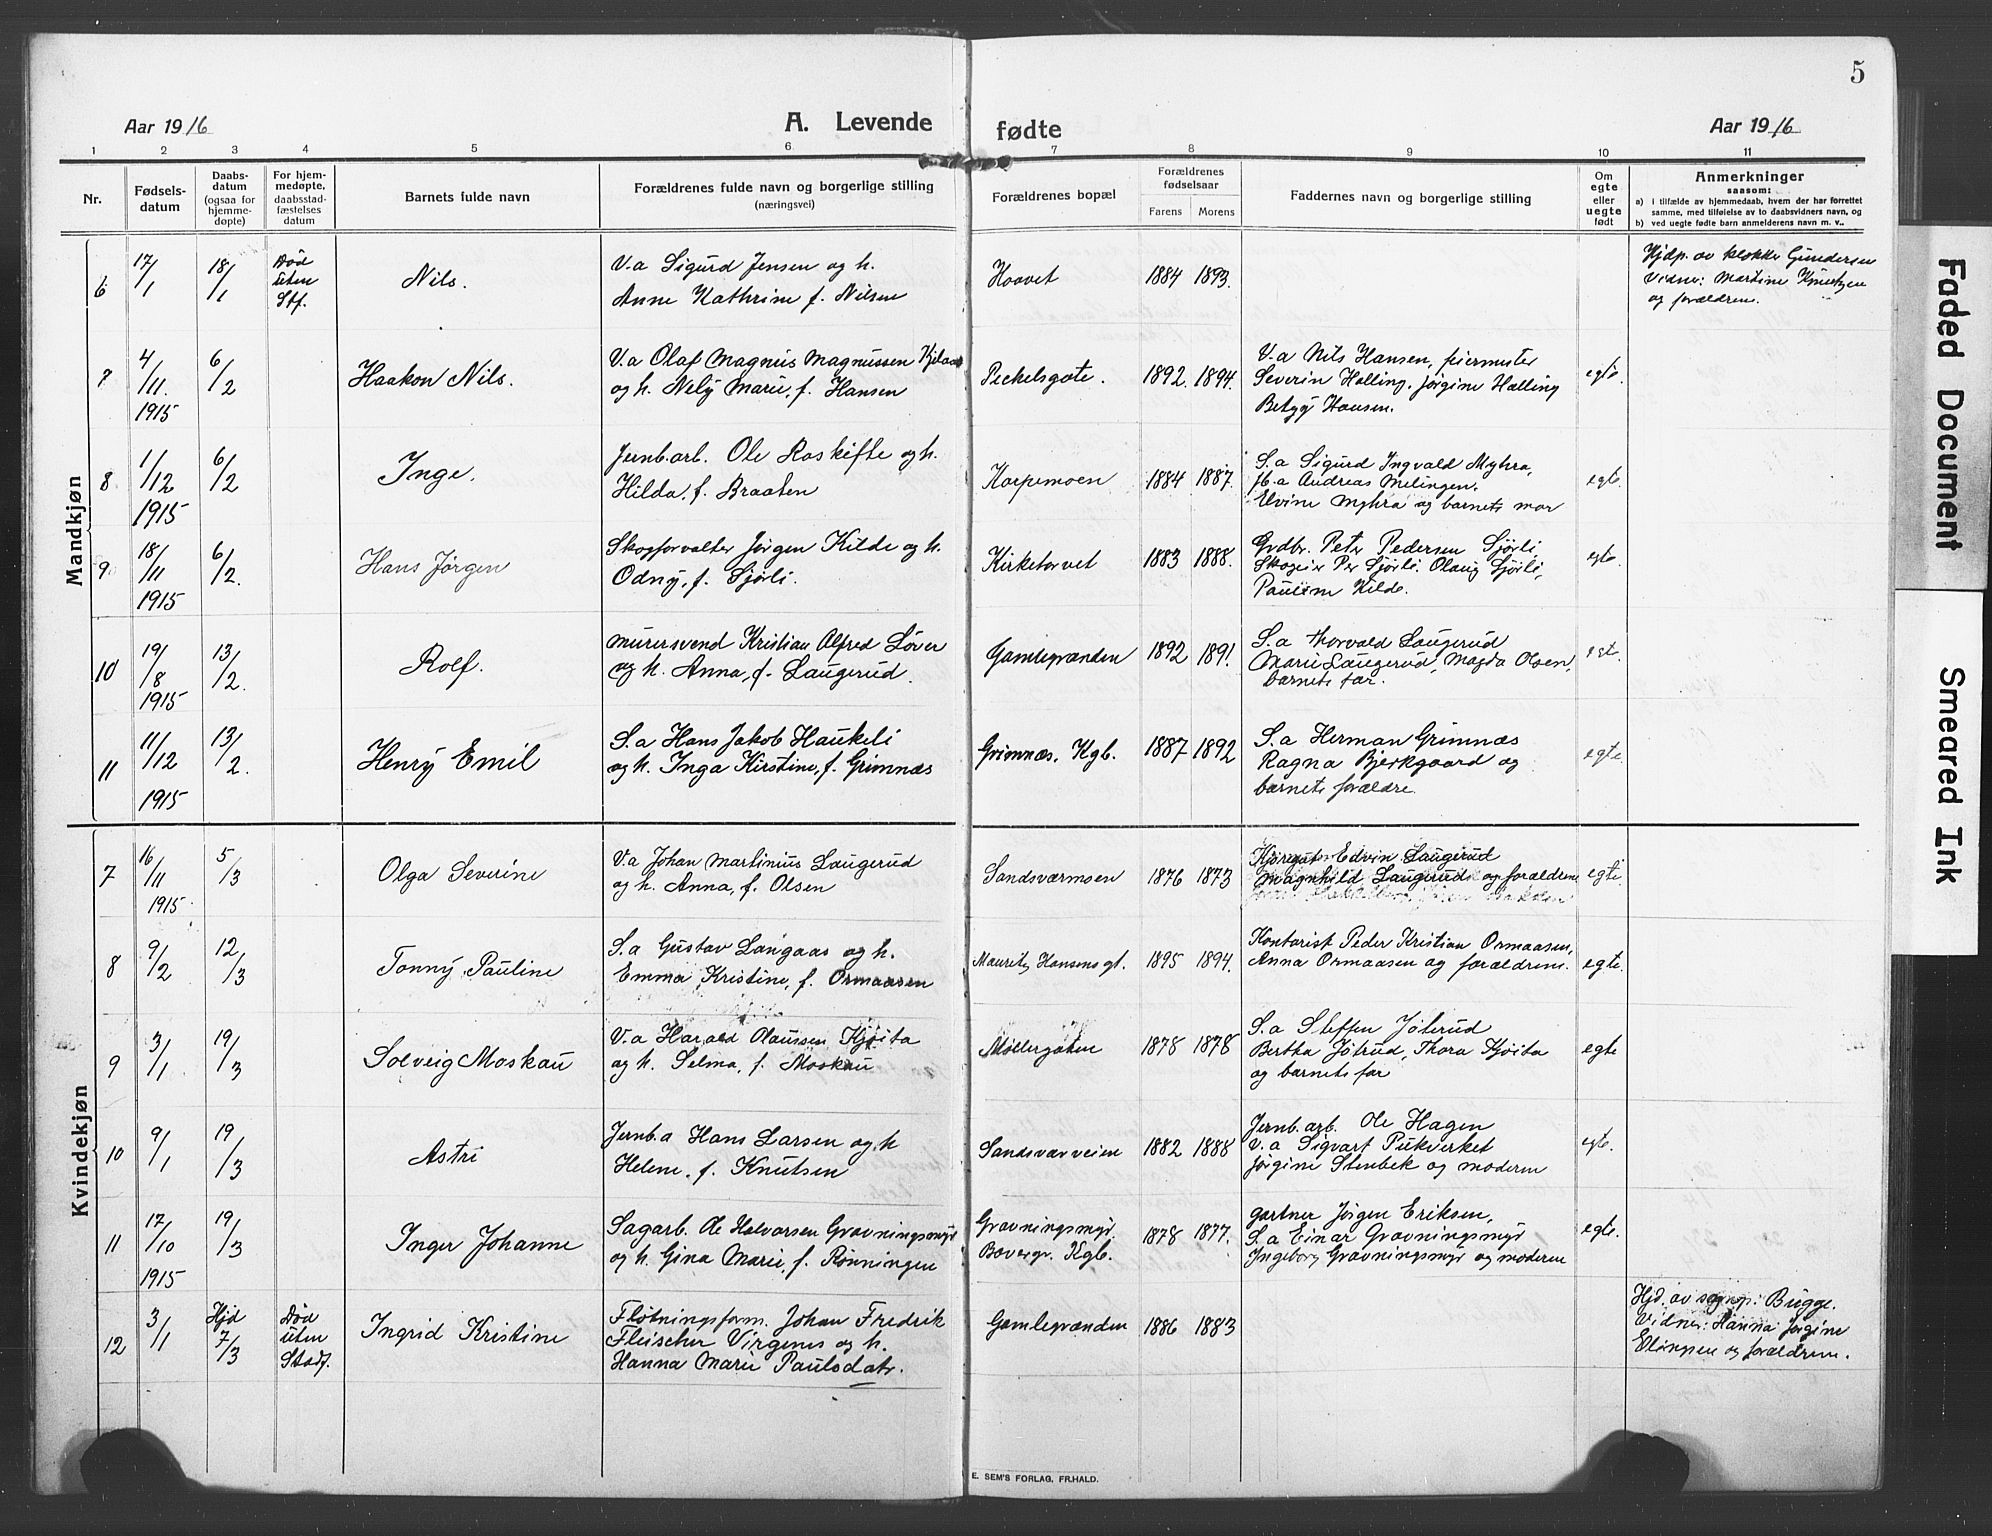 5
Aar 1916
A. Levende
fødte
Aar 1916
1 2 3 4 5 6 7 8 9 10 11
Nr.
Fødsels-
datum
Daabs-
datum
(ogsaa for
hjemme-
døpte)
For hjem-
medøpte,
daabsstad-
fæstelses
datum
Barnets fulde navn
Forældrenes fulde navn og borgerlige stilling
(næringsvei)
Forældrenes bopæl
Forældrenes
fødselsaar
Farens Morens
Faddernes navn og borgerlige stilling
Om
egte
eller
uegte
født
Anmerkninger
saasom:
a) i tilfælde av hjemmedaab, hvem der har forrettet
samme, med tilføielse av to daabsvidners navn, og
b) ved uegte fødte barn anmelderens navn m. v..
Mandkjøn
6 17/1 18/1
Død
uten
Stf.
Nils.
V.a Sigurd Jensen og h.
Anne Kathrine f. Nilsen
Haavet 1884 1893.
Hjdp. av klokker Gundersen
Vidner: Martine Knutzen
og forældrene.
7 4/11. 1915 6/2
Haakon Nils.
V.a Olaf Magnus Magnussen
og h. Nely Marie, f. Hansen
Peckelsgate. 1892. 1894.
V.a Nils Hansen, fiermester
Severin Halling, Jørgine Halling
Betzy Hansen.
egte.
8 1/12 1915 6/2
Inge.
Jernb.arb. Ole Roskifte og h.
Hilda, f. Braaten
Karpemoen 1884 1887.
S.a Sigurd Ingvald Myhra,
Jb.a Andreas Melingen,
Elvine Myhra og barnets mor
egte.
9 18/11 1915 6/2.
Hans Jørgen
Skogforvalter Jørgen Kilde og h.
Odny, f. Sjørli.
Kirketorvet 1883 1888.
Grdbr. Peter Pedersen Sjørli
Skogeier Per Sjørli. Olaug Sjørli,
Pauline Kilde.
egte.
10 19/8 1915 13/2.
Rolf.
Murersvend Kristian Alfred Løver
og h. Anna, f. Laugerud.
Gamlegrænden 1892 1891.
S.a Thorvald Laugerud
Marie Laugerud, Magda Olsen,
barnets far.
egte.
11 11/12 1915 13/2.
Henry Emil
S.a Hans Jakob Haukeli
og h. Inga Kirstine, f. Grimnæs
Grimnæs, Kgb. 1887 1892
S.a Herman Grimnæs
Ragna Bjerkgaard og
barnets forældre.
egte.
Kvindekjøn
7 16/11 1915 5/3
Olga Severine
V.a Johan Martinius Laugerud
og h. Anna, f. Olsen
Sandsværmoen 1876 1873
Edvin Laugerud
Magnhild Laugerud og forældrene
egte.
8 9/2 12/3
Tonny Pauline
S.a Gustav Langaas og h.
Emma Kristine, f. Ormaasen
Mauritz Hansens gt. 1895 1894.
Kontorist Peder Kristian Ormaasen,
Anna Ormaasen og forældrene.
egte.
9 3/1 19/3
Solveig Moskau
V.a Harald Olaussen Kjøita
og h. Selma, f. Moskau
Møllergaten 1878 1878
S.a Steffen Jøtrud
Bertha Jøtrud, Thora Kjøita
og barnets far
egte
10 9/1 19/3
Astri
Jernb.a Hans Larsen og h
Helene, f. Knutsen
Sandsværveien 1882 1888
Jernb.arb. Ole Hagen
V.a Sigvart Pukverket
Jørgine Stenbek og moderen
egte.
11 17/10 1915 19/3
Inger Johanne
Sagarb. Ole Halvorsen Gravningsmyr
og h. Gina Marie, f. Rønningen
Gravningsmyr.
Bævergr. Kgb.
1878 1877.
Gartner Jørgen Eriksen,
S.a Einar Gravningsmyr
Ingeborg Gravningsmyr og moderen
egte.
12 3/1 Hjd 7/3
Død
uten
Stadf.
Ingrid Kristine
Fløtningsform. Johan Fredrik
Fleischer Virgenes og h.
Hanna Marie Paulsdatr.
Gamlegrænden 1886 1883
Hjd. av sognep: Bugge.
Vidner: Hanna Jørgine
og forældrene.
E. SEM'S FORLAG, FR.HALD.
Faded Document
Smeared Ink